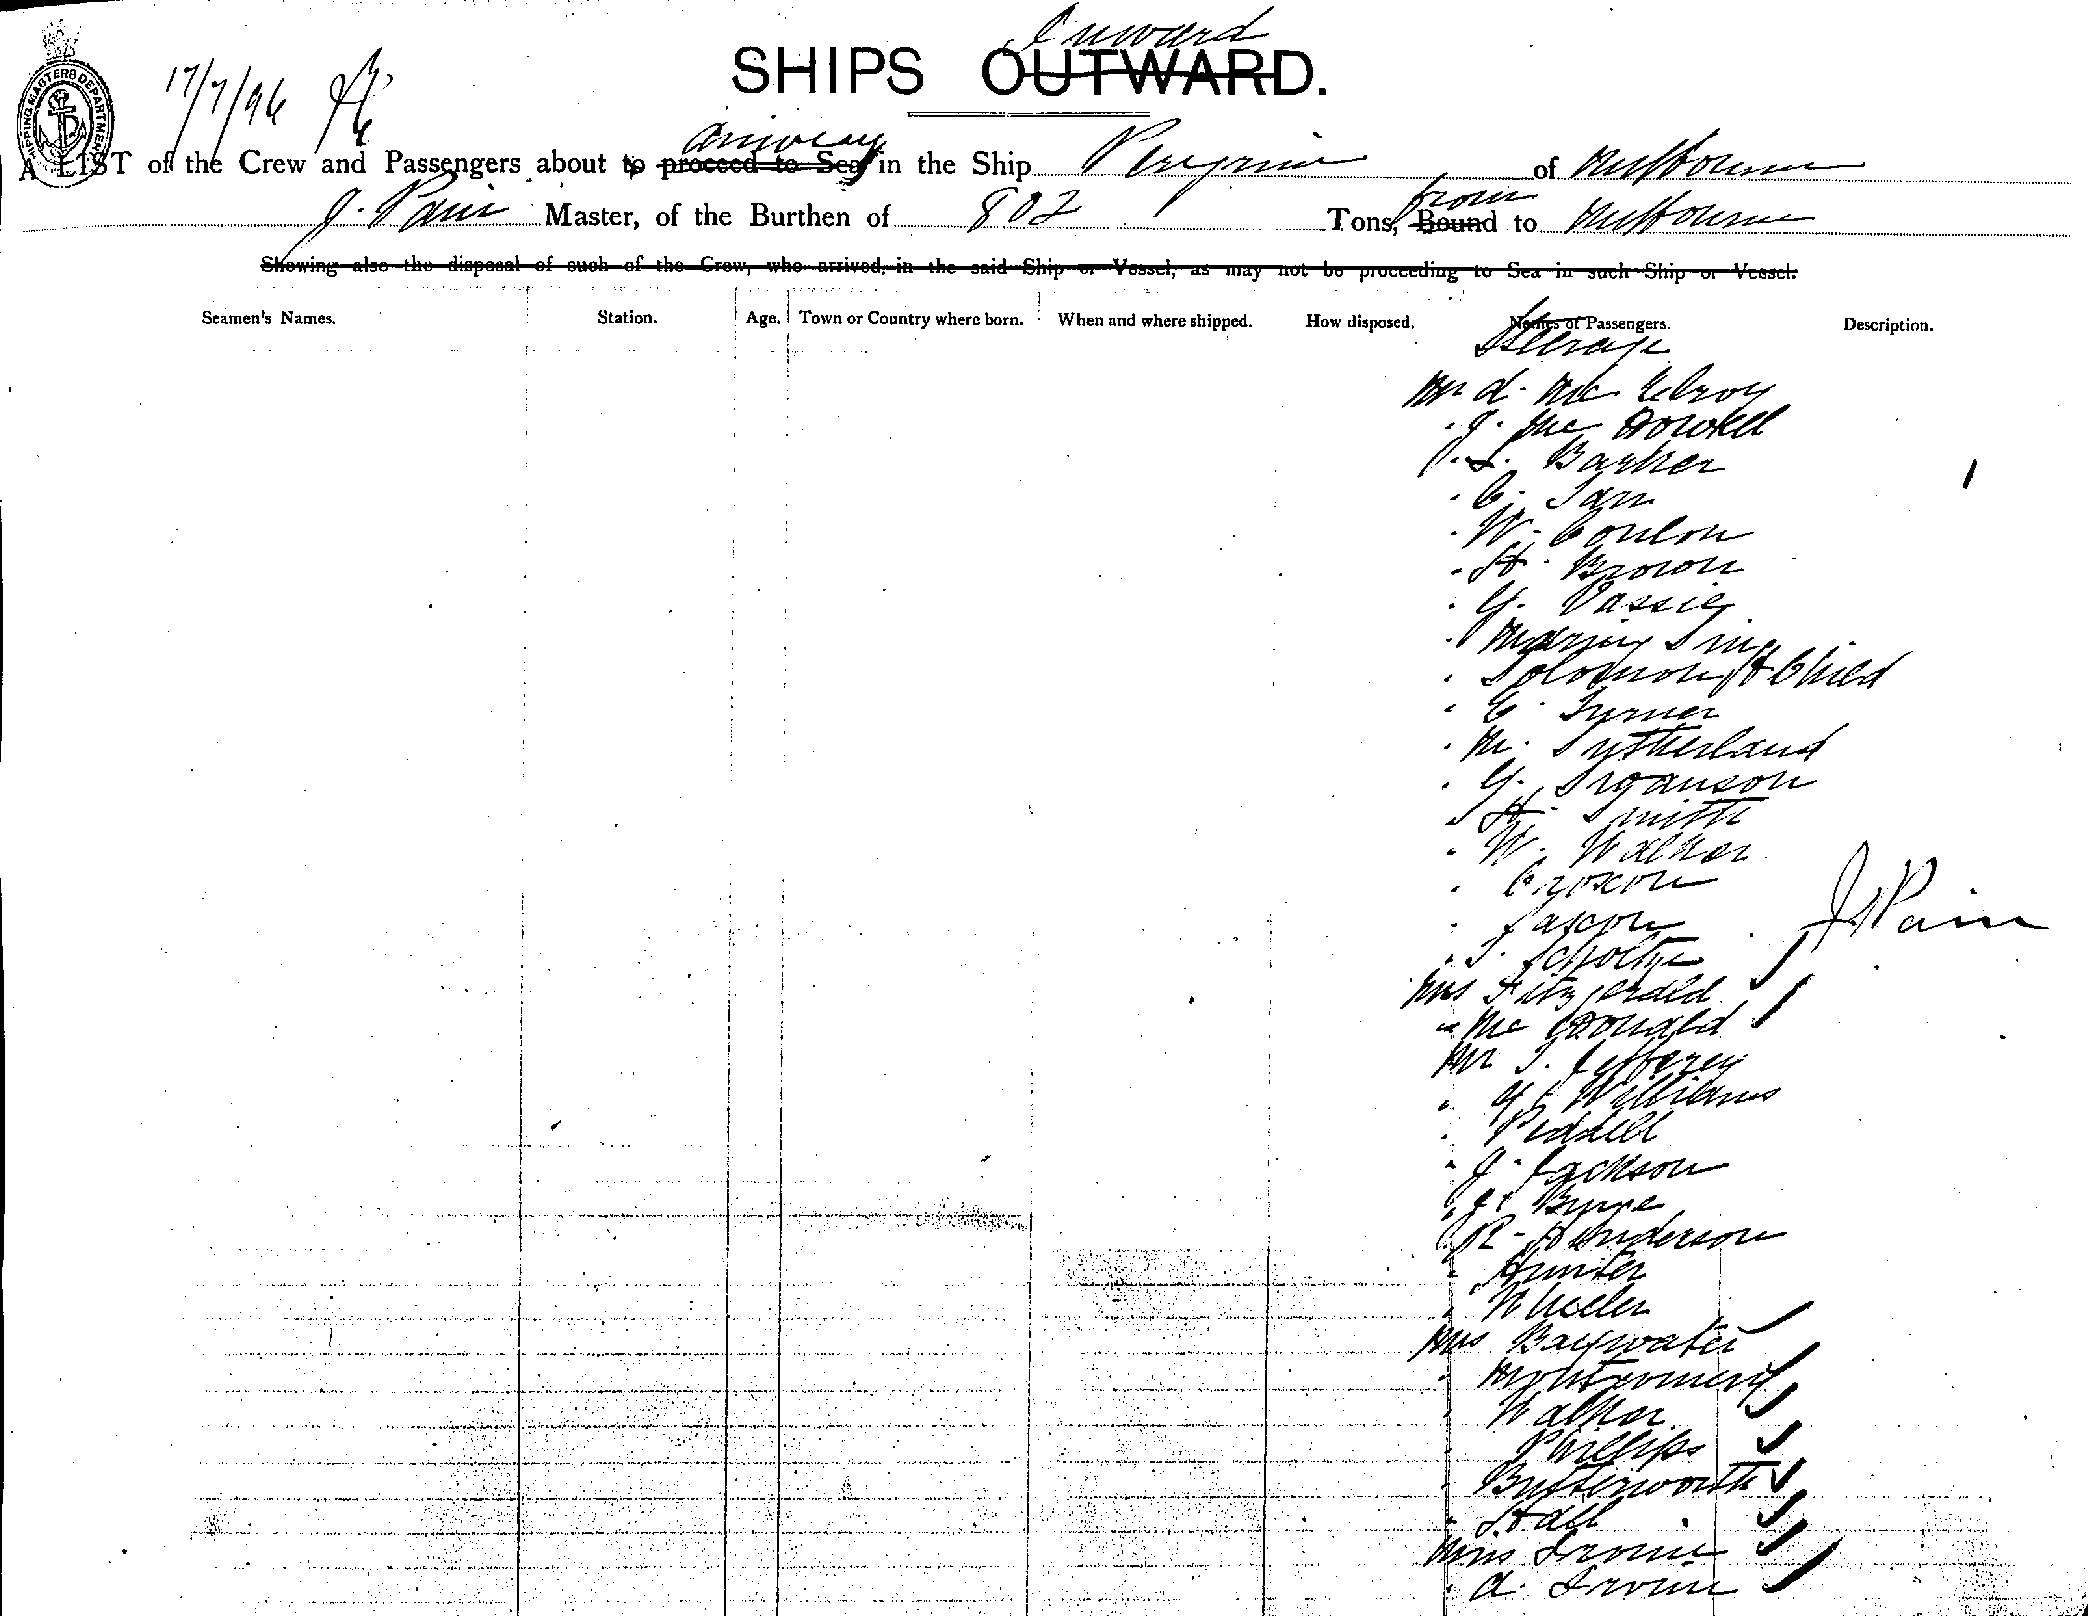 Inward
SHIPS OUTWARD.
SHIPPING MASTERS DEPARTMENT
17/7/96
arriving
A LIST of the Crew and Passengers about to proceed to Sea in the Ship Peregrine of Melbourne
from
J. Pain Master, of the Burthen of 802 Tons, Bound to Melbourne
Showing also the disposal of such of the Crew, who arrived, in the said Ship or Vessel, as may not be proceeding to Sea in such Ship or Vessel.
Seamen's Names. Station. Age. Town or Country where born. When and where shipped. How disposed. Names of Passengers. Description.
Steerage
Mr D. Mc Elroy
" J. Mc Dowell
" S. Barker
" C. Tam
" W. Conlon
" H. Brown
" G. Vassie
" Sing
" Solomon & Child
" C. Turner
" M. Sutherland
" G. Organson
" H. Smith
" W. Walker
" Croxon
" Saxon
J. Pain
" T. Scholtze
Mrs Fitzgerald
" Mc Donald
Mr T. Jefferey
" G. Williams
" Riddell
" J. Jackson
" J. Byrne
" R. Henderson
" Hunter
" Wheeler
Mrs Baywater
" Montgomery
" Walker
" Phillips
" Butterworth
" Hall
Miss Irvine
" A. Irvine